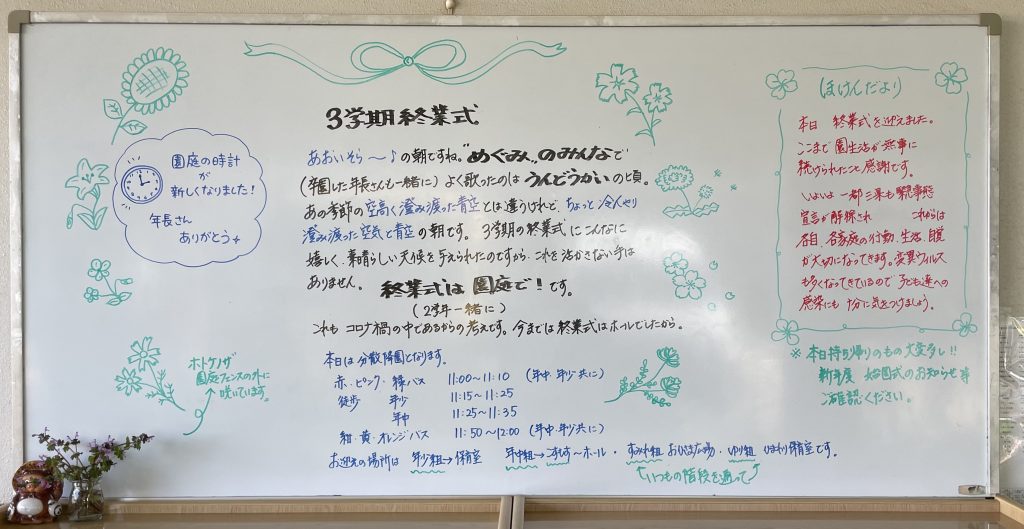 3学期終業式
あおいそら～♪の朝ですね。"めぐみ"のみんなで
(卒園した年長さんも一緒に) よく歌ったのは うんどうかいの頃。
あの季節の空高く澄み渡った青空とは違うけれど、ちょっと冷んやり
澄み渡った空気と青空の朝です。 3学期の終業式にこんなに
嬉しく、素晴らしい天候を与えられたのですから、これを活かさない手は
ありません。 終業式は 園庭で! です。
(2学年一緒に)
これも コロナ禍の中であるからの考えです。今までは終業式はホールでしたから。
本日は分散降園となります。
赤・ピンク・緑バス 11:00～11:10 (年中・年少共に)
徒歩 年少 11:15～11:25
年中 11:25～11:35
紺・黄・オレンジバス 11:50～12:00 (年中・年少共に)
お迎えの場所は 年少組→保育室 年中組→こすもす～ホール・すみれ組 おひさま広場・ゆり組 ひまわり保育室です。
いつもの階段を通って
園庭の時計
が
新しくなりました!
年長さん
ありがとう
ホトケノザ
園庭フェンスの外に
咲いています。
ほけんだより
本日 終業式を迎えました。
ここまで園生活が無事に
続けられたこと感謝です。
いよいよ一都三県も緊急事態
宣言が解除され これからは
各自、各家庭の行動、生活、自覚
が大切になってきます。変異ウィルス
も多くなってきているので 子ども達への
感染にも十分に気をつけましょう。
※ 本日持ち帰りのもの大変多し!!
新年度 始園式のお知らせ等
ご確認ください。